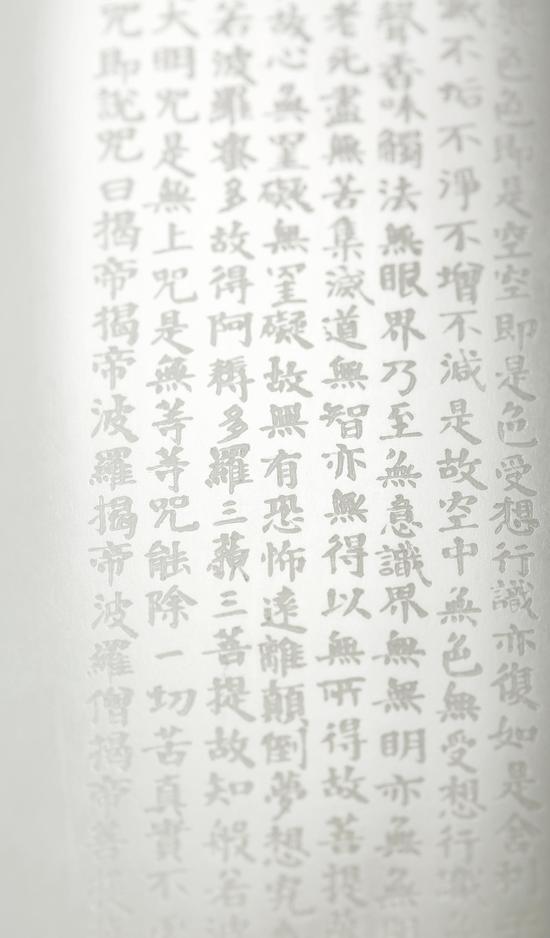 色色即是空空即是色受想行識亦復如是舍利
不垢不淨不增不減是故空中無色無受想行識
聲香味觸法無眼界乃至無意識界無無明亦無無
老死盡無苦集滅道無智亦無得以無所得故菩提
故心無罣礙無罣礙故無有恐怖遠離顛倒夢想究
若波羅蜜多故得阿耨多羅三藐三菩提故知般若波
大明咒是無上咒是無等等咒能除一切苦真實不
咒即說咒曰揭帝揭帝波羅揭帝波羅僧揭帝菩